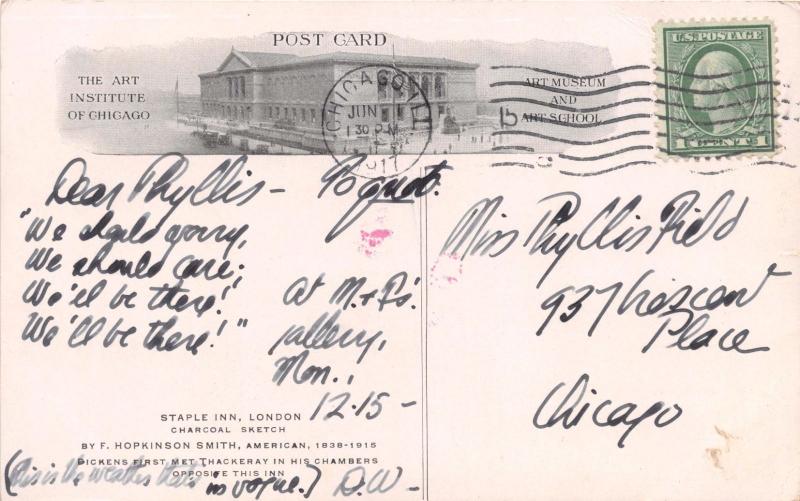 POST CARD
THE ART
INSTITUTE
OF CHICAGO
CHICAGO, ILL
JUN
1 30 PM
1917
ART MUSEUM
AND
ART SCHOOL
U.S. POSTAGE
1 CENT 1
Dear Phyllis –
"We should worry,
We should care;
We'll be there!
We'll be there!"
At M. + F's.
gallery,
Mon.,
12.15 –
Miss Phyllis Field
937 Crescent
Place
Chicago
STAPLE INN, LONDON
CHARCOAL SKETCH
BY F. HOPKINSON SMITH, AMERICAN, 1838-1915
DICKENS FIRST MET THACKERAY IN HIS CHAMBERS
OPPOSITE THIS INN
(This is the weather that's in vogue.) D.W –